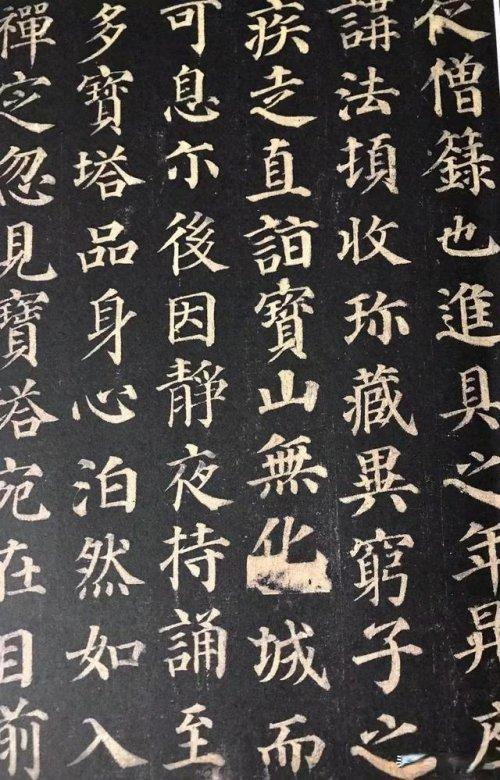 僧籙也進具之年昇
講法頓收珎藏異窮子之
疾走直詣寶山無化城而
可息尒後因靜夜持誦至
多寶塔品身心泊然如入
禪定忽見寶塔宛在目前